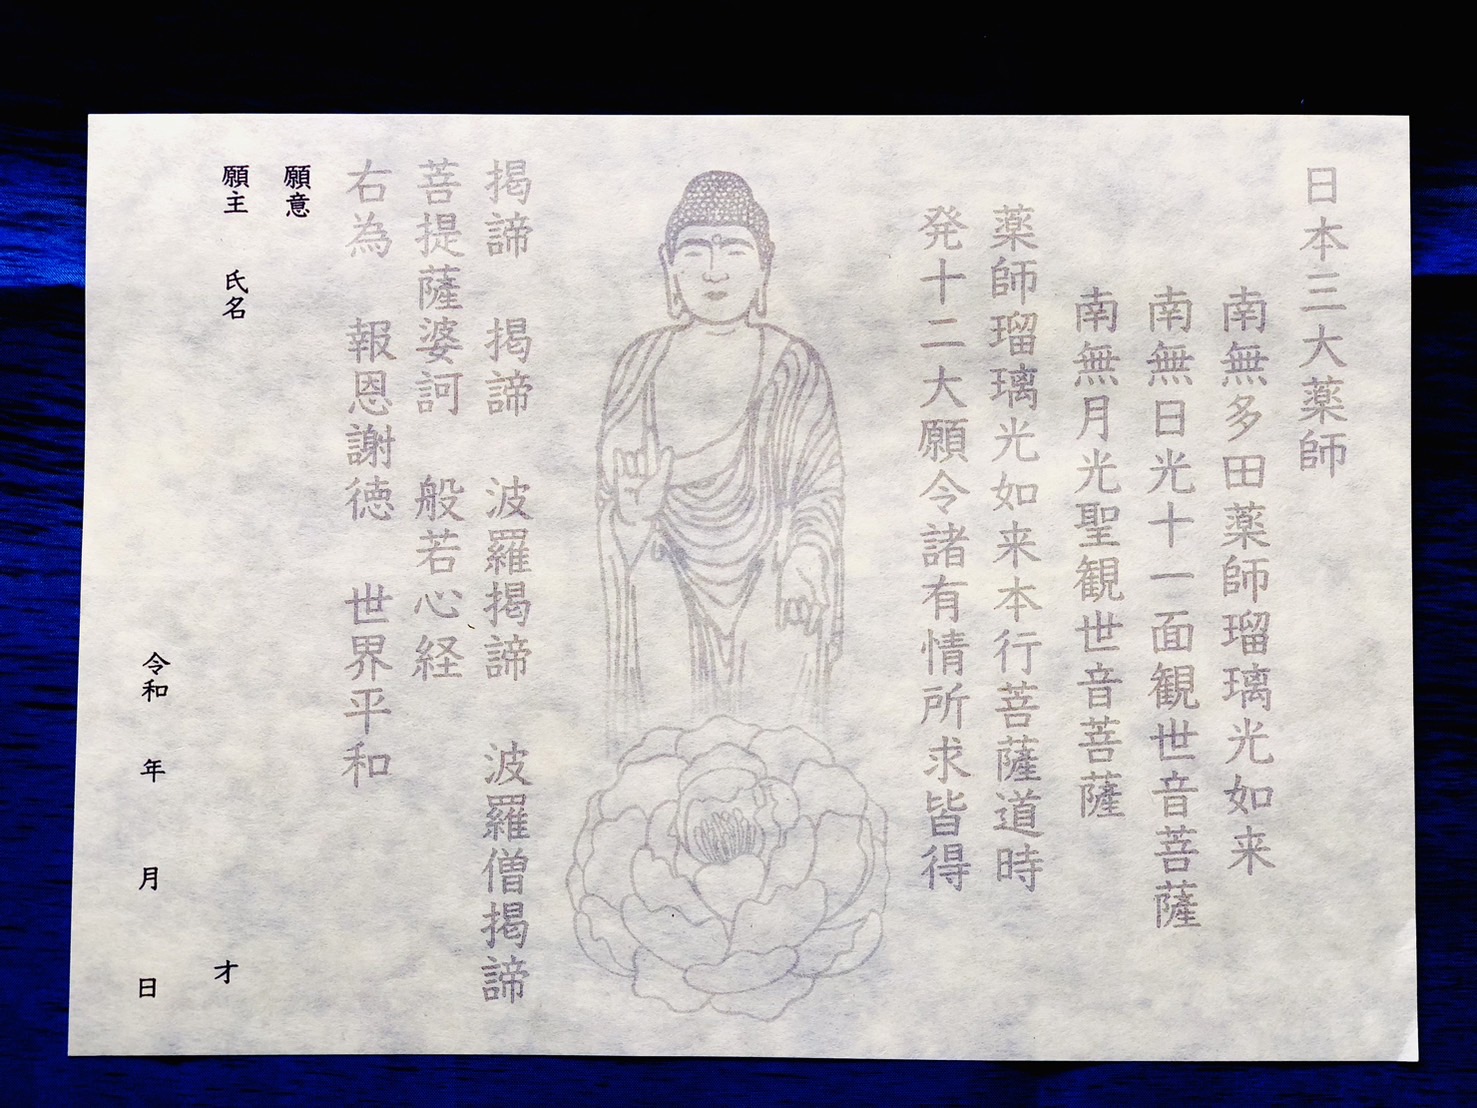 日本三大薬師
南無多田薬師瑠璃光如来
南無日光十一面観世音菩薩
南無月光聖観世音菩薩
薬師瑠璃光如来本行菩薩道時
発十二大願令諸有情所求皆得
掲諦 掲諦 波羅掲諦 波羅僧掲諦
菩提薩婆訶 般若心経
右為 報恩謝徳 世界平和
願意
願主 氏名 才
令和 年 月 日